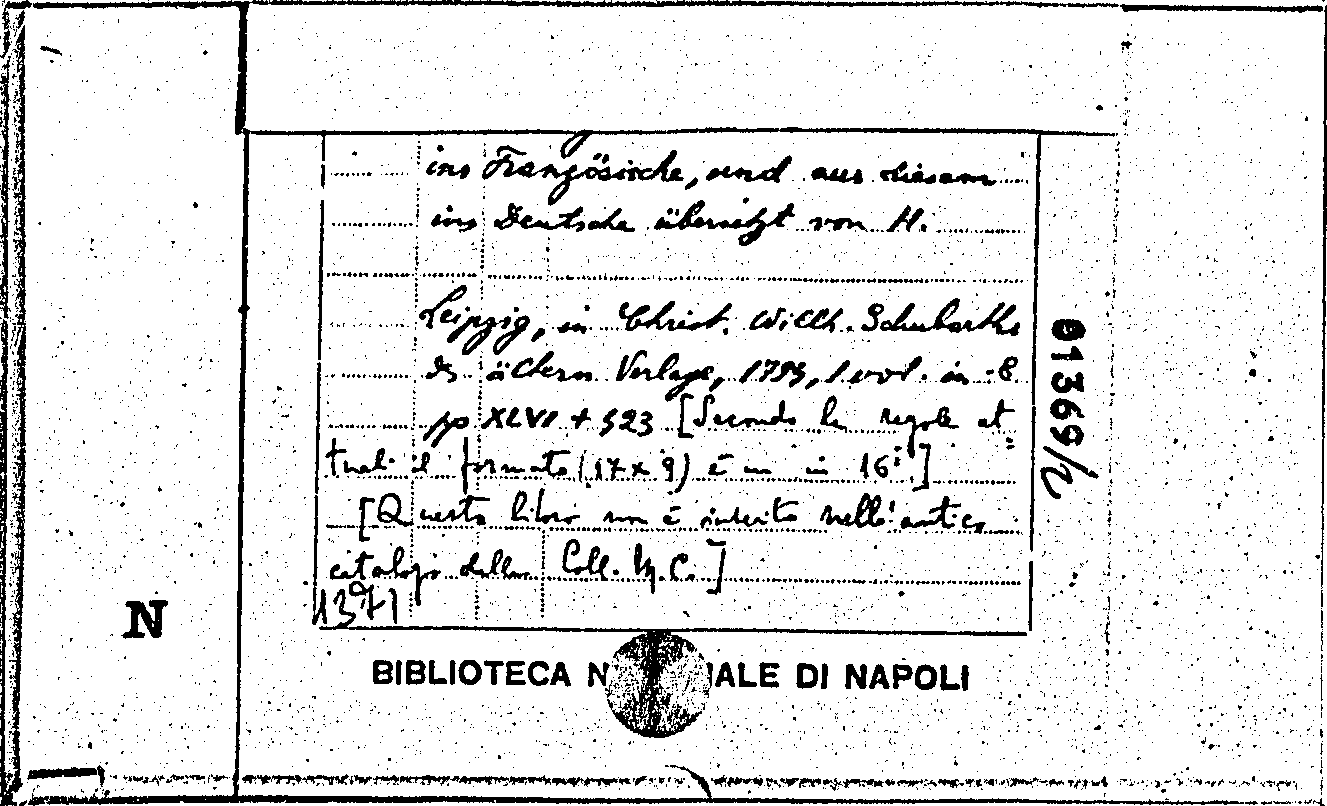 ins Französische, und aus diesem
ins Deutsche übersetzt von H.
Leipzig, in Christ. Willh. Schubarths
des ältern Verlage, 1793, 1 vol. in -8
pp XLVI + 523 [Secondo le regole at
tuali il formato (17 x 9) è un in 16°]
[Questo libro non è inserito nell'antico
catalogo della Coll. M.C.]
1371
01369/2
N
BIBLIOTECA N ALE DI NAPOLI